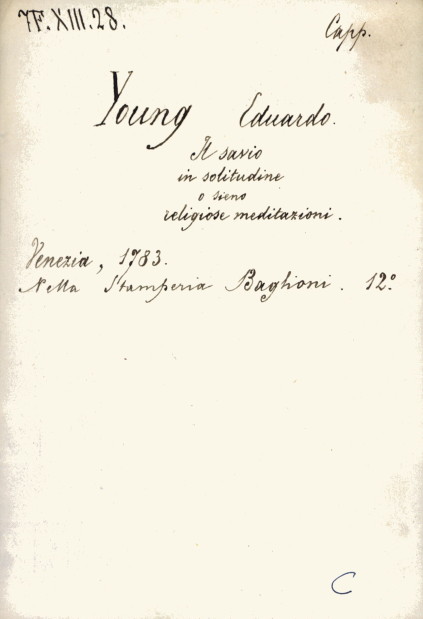 7F.XIII.28.
Capp.
Young Eduardo.
Il savio
in solitudine
o sieno
religiose meditazioni.
Venezia, 1783.
Nella Stamperia Baglioni. 12º
C